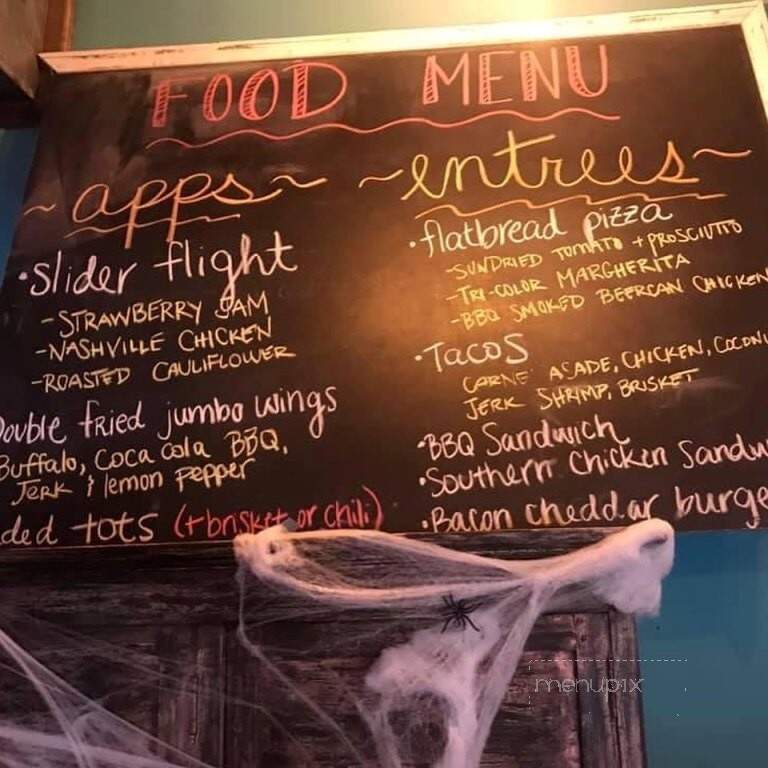 FOOD MENU
~apps~
•slider flight
-STRAWBERRY JAM
-NASHVILLE CHICKEN
-ROASTED CAULIFLOWER
Double fried jumbo wings
Buffalo, Coca Cola BBQ,
Jerk & lemon pepper
ded tots (+brisket or chili)
~entrees~
•flatbread pizza
-SUNDRIED TOMATO + PROSCIUTTO
-TRI-COLOR MARGHERITA
-BBQ SMOKED BEERCAN CHICKEN
•Tacos
CARNE ASADE, CHICKEN, COCONU
JERK SHRIMP, BRISKET
•BBQ Sandwich
•Southern Chicken Sandw
•Bacon cheddar burge
menupix